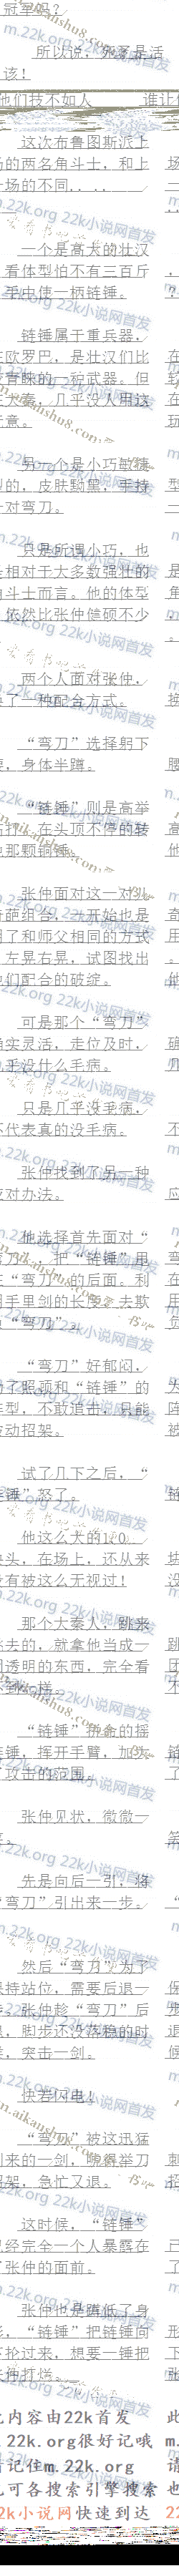 冠军吗?
所以说,死了是活
该!
他们技不如人
谁让
这次布鲁图斯派上
的两名角斗士,和上
场
一场的不同....
一个是高大的壮汉
看体型怕不有三百斤
手中使一柄链锤。
链锤属于重兵器,
欧罗巴,是壮汉们比
在
青睐的一种武器。但
大秦,几乎没人用这
在
玩
意。
另一个是小巧敏捷
的,皮肤黝黑,手持
型
一对弯刀。
只是所谓小巧,也
是相对于大多数强壮的
是
角斗士而言。他的体型
角
依然比张仲健硕不少
。
两个人面对张仲,
了一种配合方式。
“弯刀”选择躬下
腰,身体半蹲。
腰
“链锤”则是高举
高
在头顶不停的转
那颗铜锤。
他
张仲面对这一对儿
奇
组合,一开始也是
用了和师父相同的方式
用
左晃右晃,试图找出
。
他们配合的破绽。
可是那个“弯刀”
确实灵活,走位及时,
确
几乎没什么毛病。
几
只是几乎没毛病,
不代表真的没毛病。
不
张仲找到了另一种
应对办法。
应
他选择首先面对“
弯刀”,把“链锤”甩
弯
在“弯刀”的后面。利
在
用手里剑的长度,去欺
用
负“弯刀”。
负
“弯刀”好郁闷,
为了照顾和“链锤”的
为
阵型,不敢追击,只能
阵
被动招架。
被
试了几下之后,“
链锤”怒了。
链
他这么大的1/0
块头,在场上,还从来
块
没有被这么无视过!
没
那个大秦人,跳来
跳去的,就拿他当成一
跳
团透明的东西,完全看
团
不到一样。
不
“链锤”拼命的摇
链锤,挥开手臂,加大
链
了攻击的范围。
了
张仲见状,微微一
笑。
笑
先是向后一引,将
“弯刀”引出来一步。
“
然后“弯刀”为了
保持站位,需要后退一
保
步。张仲趁“弯刀”后
步
退,脚步还没落稳的时
退
候,突击一剑。
候
快若闪电!
“弯刀”被这迅猛
刺来的一剑,唬得举刀
刺
招架,急忙又退。
招
这时候,“链锤”
已经完全一个人暴露在
正
了张仲的面前。
了
张仲也是蹲低了身
形,“链锤”把链锤向
形
下抡过来,想要一锤把
下
张仲打烂。
张
此内容由22k首发
此
m.22k.org很好记哦
m.
请记住m.22k.org
请
也可各搜索引擎搜索
也
22k小说网快速到达
22